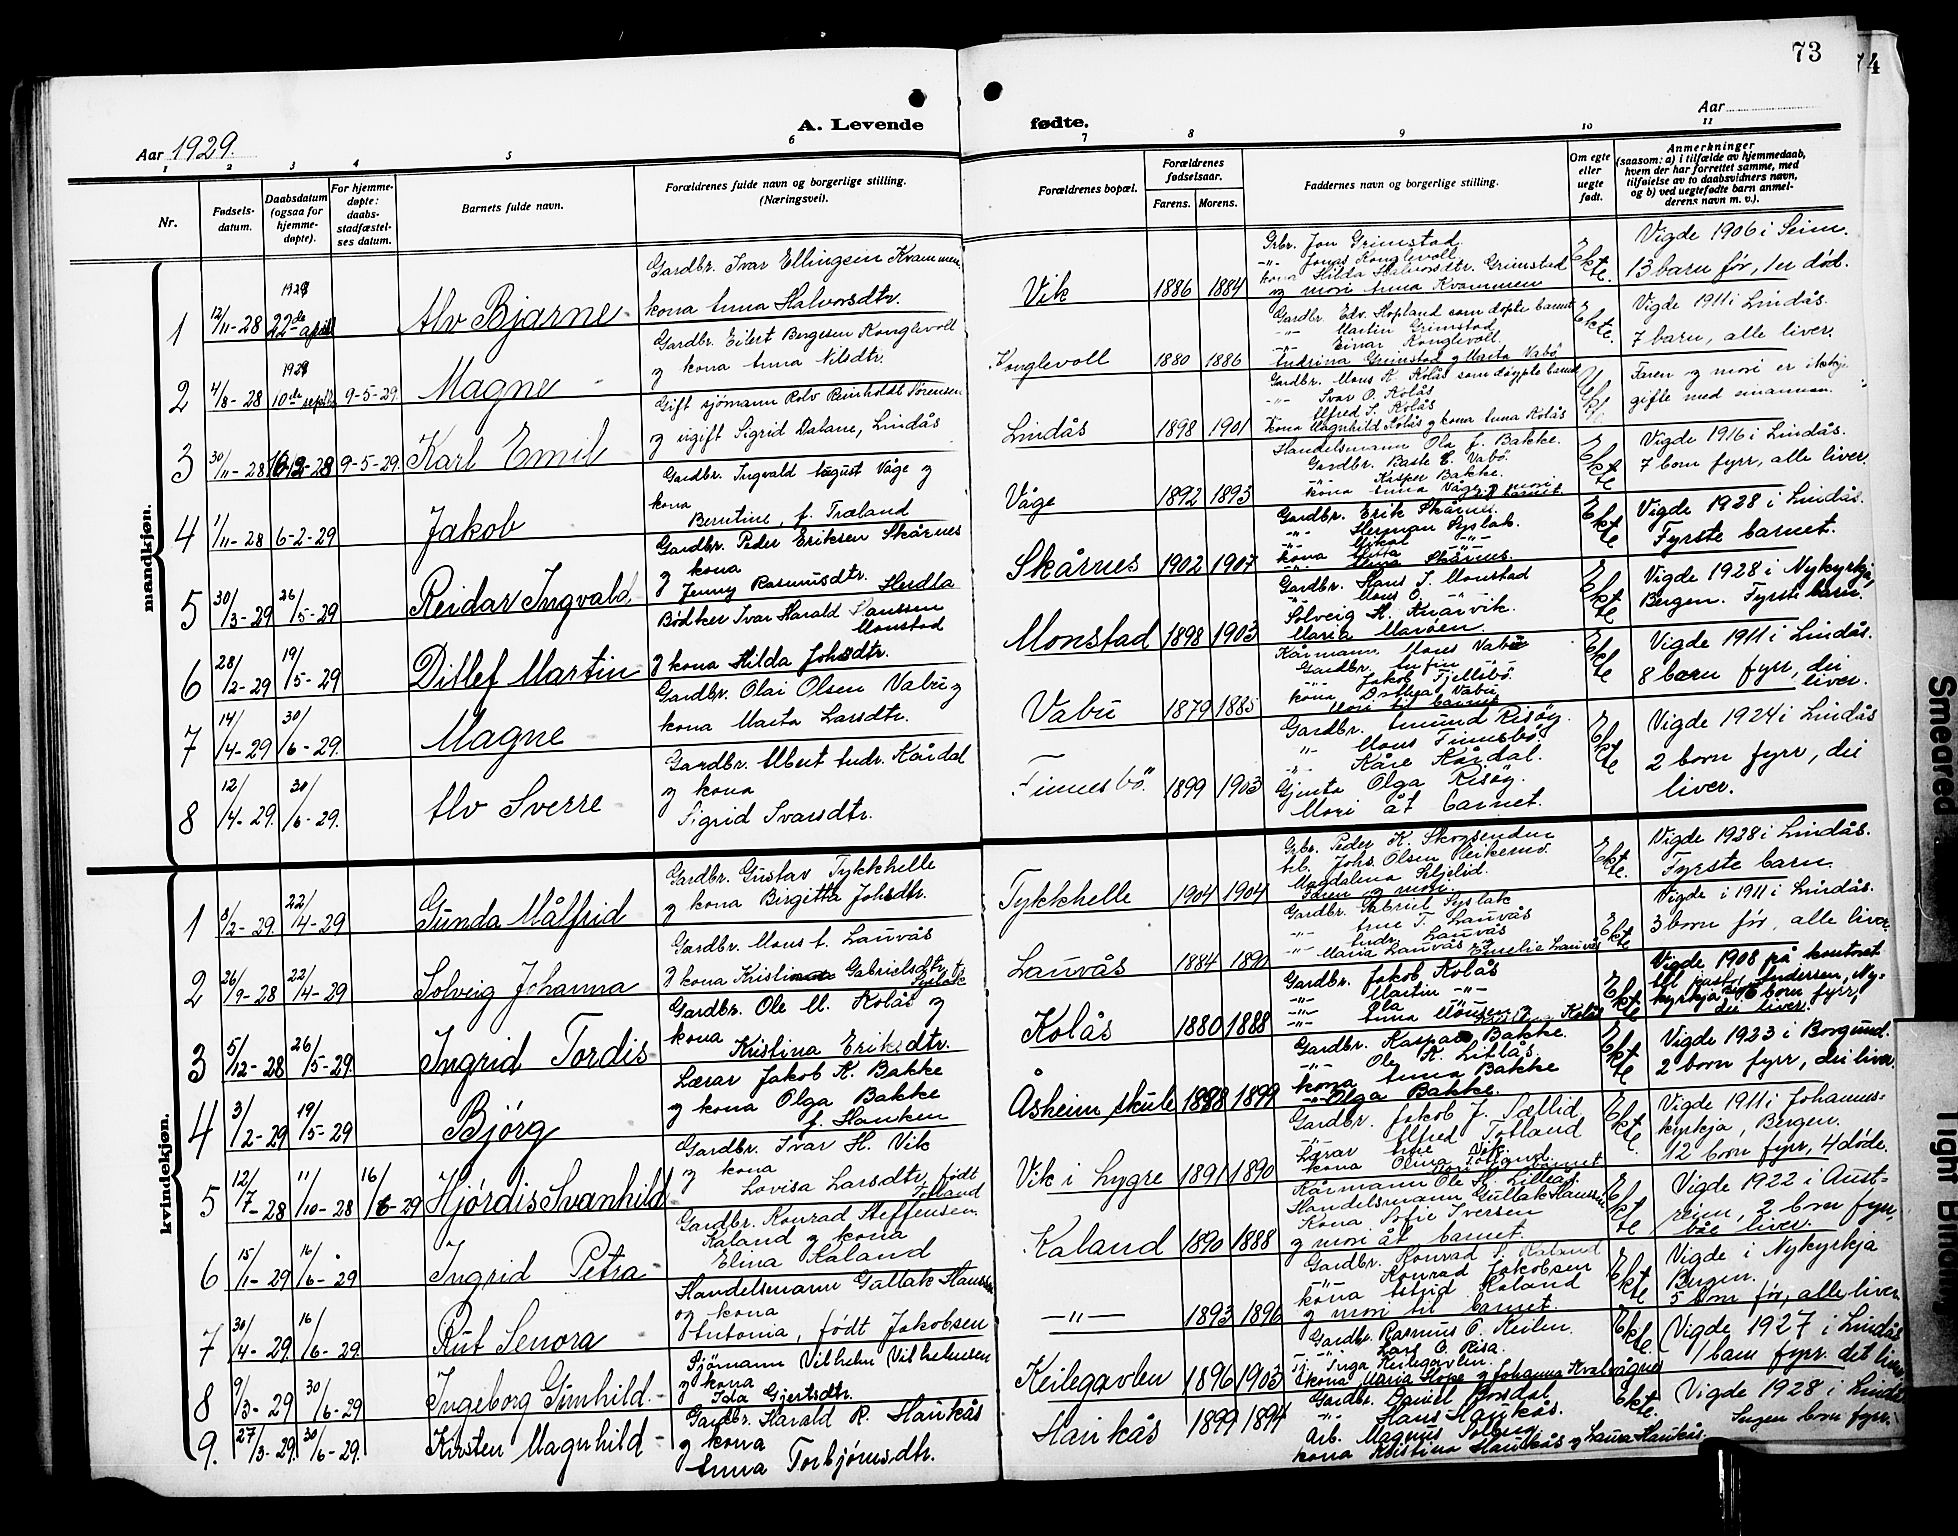 73
74
A. Levende
fødte.
Aar 1929.
Aar
1 2 3 4 5 6 7 8 9 10 11
Nr.
Fødsels-
datum.
Daabsdatum
(ogsaa for
hjemme-
døpte).
For hjemme-
døpte:
daabs-
stadfæstel-
ses datum.
Barnets fulde navn.
Forældrenes fulde navn og borgerlige stilling.
(Næringsvei).
Forældrenes bopæl.
Forældrenes
fødselsaar.
Farens. Morens.
Faddernes navn og borgerlige stilling.
Om egte
eller
uegte
født.
Anmerkninger
(saasom: a) i tilfælde av hjemmedaab,
hvem der har forrettet samme, med
tilføielse av to daabsvidners navn,
og b) ved uegtefødte barn anmel-
derens navn m. v.).
mandkjøn.
1 12/11-28 22de april
Alv Bjarne
Gardbr. Ivar Ellingsein Kvammen
kona Anna Halvorsdtr.
Vik 1886 1884
Grbr. Jon Grimstad
-"- Jonas Konglevoll
kona Hilda Halvorsdtr. Grimstad
og mori Anna Kvammen
Ekte.
Vigde 1906 i Seim.
13 barn før, 1 er död.
2 4/8-28 10de septbr 9-5-29
Magne
Gardbr. Eilert Bergesen Konglevoll
og kona Anna Nilsdtr.
Konglevoll 1880 1886
Gardbr. Edv. Hopland som døpte barnet
-"- Martin Grimstad
-"- Einar Konglevoll
Andrina Grimstad og Marta Vabö
Ekte.
Vigde 1911 i Lindås.
7 barn, alle liver.
3 30/11-28 9-5-29
Karl Emil
Gift sjömann Rolv Reinholdt Sörensen
og ugift Sigrid Dalane, Lindås
Lindås 1898 1901
Gardbr. Mons K. Kolås som døypte barnet
-"- Ivar O. Kolås
Alfred I. Kolås
kona Magnhild Kolås og kona Anna Kolås
Faren og mori er ikkje
gifte med einannan.
4 1/11-28 6-2-29
Jakob
Gardbr. Ingvald August Våge og
kona
Berntine, f. Træland
Våge 1892 1893
Handelsmann Ola J. Bakke.
Gardbr. Baste E. Vabö
-"- Kasper Bakke.
kona Anna Våge, mori
til barnet.
Ekte
Vigde 1916 i Lindås.
7 born fyrr, alle liver.
5 30/3-29 26/5-29
Reidar Ingvald
Gardbr. Peder Eriksen Skårnes
og kona
Jenny Rasmusdtr. Herdla
Skårnes 1902 1907
Gardbr. Erik Skårnes
-"- Herman Syslak.
-"- Mikal -"-
kona Gitta -"-
-"- Anna Skårnes.
Ekte
Vigde 1928 i Lindås.
Fyrste barnet.
6 28/2-29 19/5-29
Ditlef Martin
Bødtker Ivar Harald Hanssen
Monstad
og kona Hilda Johsdtr.
Monstad 1898 1903
Gardbr. Hans J. Monstad
-"- Mons O. -"-
Solveig H. Knarvik.
Maria Maröen.
Ekte
Vigde 1928 i Nykyrkja,
Bergen. Fyrste barn.
7 14/4-29 30/6-29.
Magne
Gardbr. Olai Olsen Vabu og
kona Marta Larsdtr.
Vabu 1879 1885
Kårmann Mons Vabö
Gardbr. Anfin -"-
-"- Jakob Fjellsbö.
kona Dorthea Vabu
Mori til barnet
Ekte
Vigde 1911 i Lindås.
8 bærn fyrr, dei
liver.
8 12/4-29. 30/6-29.
Alv Sverre
Gardbr. Albert Andr. Kårdal
og kona
Sigrid Ivarsdtr.
Finnesbö. 1899 1903
Gardbr. Amund Risöy.
-"- Mons Finnesbö.
-"- Kåre Kårdal.
Gjenta Olga Risöy.
Mori åt barnet.
Ekte
Vigde 1924 i Lindås
2 born fyrr, dei
liver.
kvindekjøn.
1 8/2-29. 22/4-29
Gunda Målfrid
Gardbr. Gustav Tykkhelle
og kona Birgitta Johsdtr.
Tykkhelle 1904 1904
Grbr. Peder K. Skogsenden
Johs. Olsen
Magdalena Seljelid.
Faren og mori.
Ekte.
Vigde 1928 i Lindås.
Fyrste barn.
2 26/9-28 22/4-29
Solveig Johanna
Gardbr. Mons A. Lauvås
og kona Kristina Gabrielsdtr f.
Syslak
Lauvås 1884 1890
Gardbr. Gabriel Syslak
-"- Arne T. Lauvås
-"- Andr. Lauvås
-"- Maria Lauvås og Emelie Lauvås
Ekte
Vigde i 1911 i Lindås.
3 born før, alle liver.
3 5/12-28 26/5-29.
Ingrid Tordis
Gardbr. Ole M. Kolås og
kona
Kristina Eriksdtr.
Kolås 1880 1888
Gardbr. Jakob Kolås
-"- Martin -"-
-"- Ola
-"- Anna Monsen og Kolås
Ekte
Vigde 1908 på kontoret
til Andersen, Ny-
kyrkja 6 born fyrr,
dei liver.
4 3/2-29 19/5-29
Bjørg
Lærar Jakob K. Bakke
og kona Olga Bakke
f. Hanken
Åsheim skule 1898 1899
Gardbr. Kasper Bakke.
-"- Ole K. Litlås.
kona Anna Bakke
-"- Olga Bakke.
Ekte
Vigde 1923 i Borgund.
2 born fyrr, dei liver.
5 12/7-28 11/10-28 16/6-29
Hjördis Svanhild
Gardbr. Ivar H. Vik
og kona
Lovisa Larsdtr, født
Totland
Vik i Lygre 1891 1890
Gardbr. Jakob J. Sætlid
-"- Alfred Totland
Lærar Arne Vik
kona Olina Totland.
Ekte.
Vigde 1911 i Johannes-
kyrkja, Bergen.
12 born fyrr, 4 döde.
6 15/1-29 16/6-29
Ingrid Petra
Gardbr. Konrad Steffensen
Kaland og kona
Elina Kaland
Kaland 1890 1888
Kårmann Ole H. Lilleås
Handelsmann Gullak Hanssen
Kona Sofie Iversen
og mori åt barnet.
Ekte
Vigde 1922 i Aust-
reien, 2 born fyrr,
båe liver.
7 30/4-29. 16/6-29
Rut Senora
Handelsmann Gullak Hanssen
og kona
Antonia, født Jakobsen
-"- 1893 1896
Gardbr. Konrad S. Kaland
-"- Konrad Jakobsen
kona Astrid Kaland
og mori til barnet.
Ekte
Vigde i Nykyrkja
Bergen.
5 born før, alle liver
8 9/3-29 30/6-29
Ingeborg Gunhild
Sjömann Vilhelm Vilhelmsen
og kona
Ida Gjertsdtr.
Keilegavlen 1896 1903
Gardbr. Rasmus O. Keilen.
-"- Lars O. Risa.
Tj. Inga Keilegavlen.
kona Maria Hope og Johanna Kvalvågnes
Ekte.
Vigde 1927 i Lindås
1 barn fyrr. det liver
9. 27/3-29. 30/6-29.
Kirsten Magnhild
Gardbr. Harald R. Haukås
og kona
Anna Torbjörnsdtr.
Haukås 1899 1894
Gardbr. Daniel Dosdal
-"- Hans Haukås.
Arb. Magnus Solberg
kona Kristina Haukås og Laura Haukås.
Ekte.
Vigde 1928 i Lindås
Ingen born fyrr.
Smeared
Tight Binding